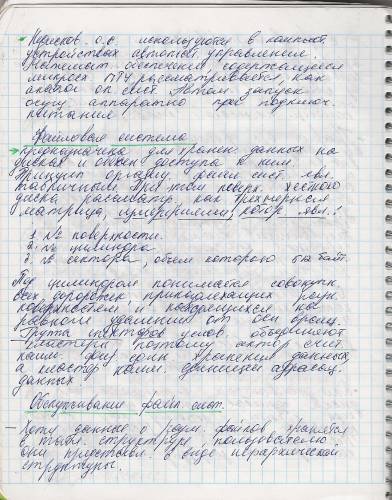 о.с. используются в
устройствах автомат. управления.
содержащееся
ПЗУ рассматривается, как
аналог оп. сист. запуск
осущ. аппаратно при подключ.
питания
Файловая система
предназначена для хранен. данных на
дисках и обеспеч доступа к ним.
Принцип организ. файл. сист. явл.
табличным. При этом поверх. жесткого
диска рассматр. как трехмерная
матрица, измерениями, котор. явл.:
1. № поверхности.
2. № цилиндра
3. № сектора, объем которого байт
Под цилиндром понимается совокупн.
всех дорожек, принадлежащих разн.
поверхностям и находящихся на
равном удалении от оси вращ.
Группа секторов условн. объединяют
кластеры поэтому сектор счит.
наим. физ. един. хранения данных,
а кластер наим. единицей адресац.
данных
Обслуживание файл. сист.
- Хотя данные о разм. файлов хранятся
в табл. структуре, пользователю
они представл. в виде иерархической
структуры.